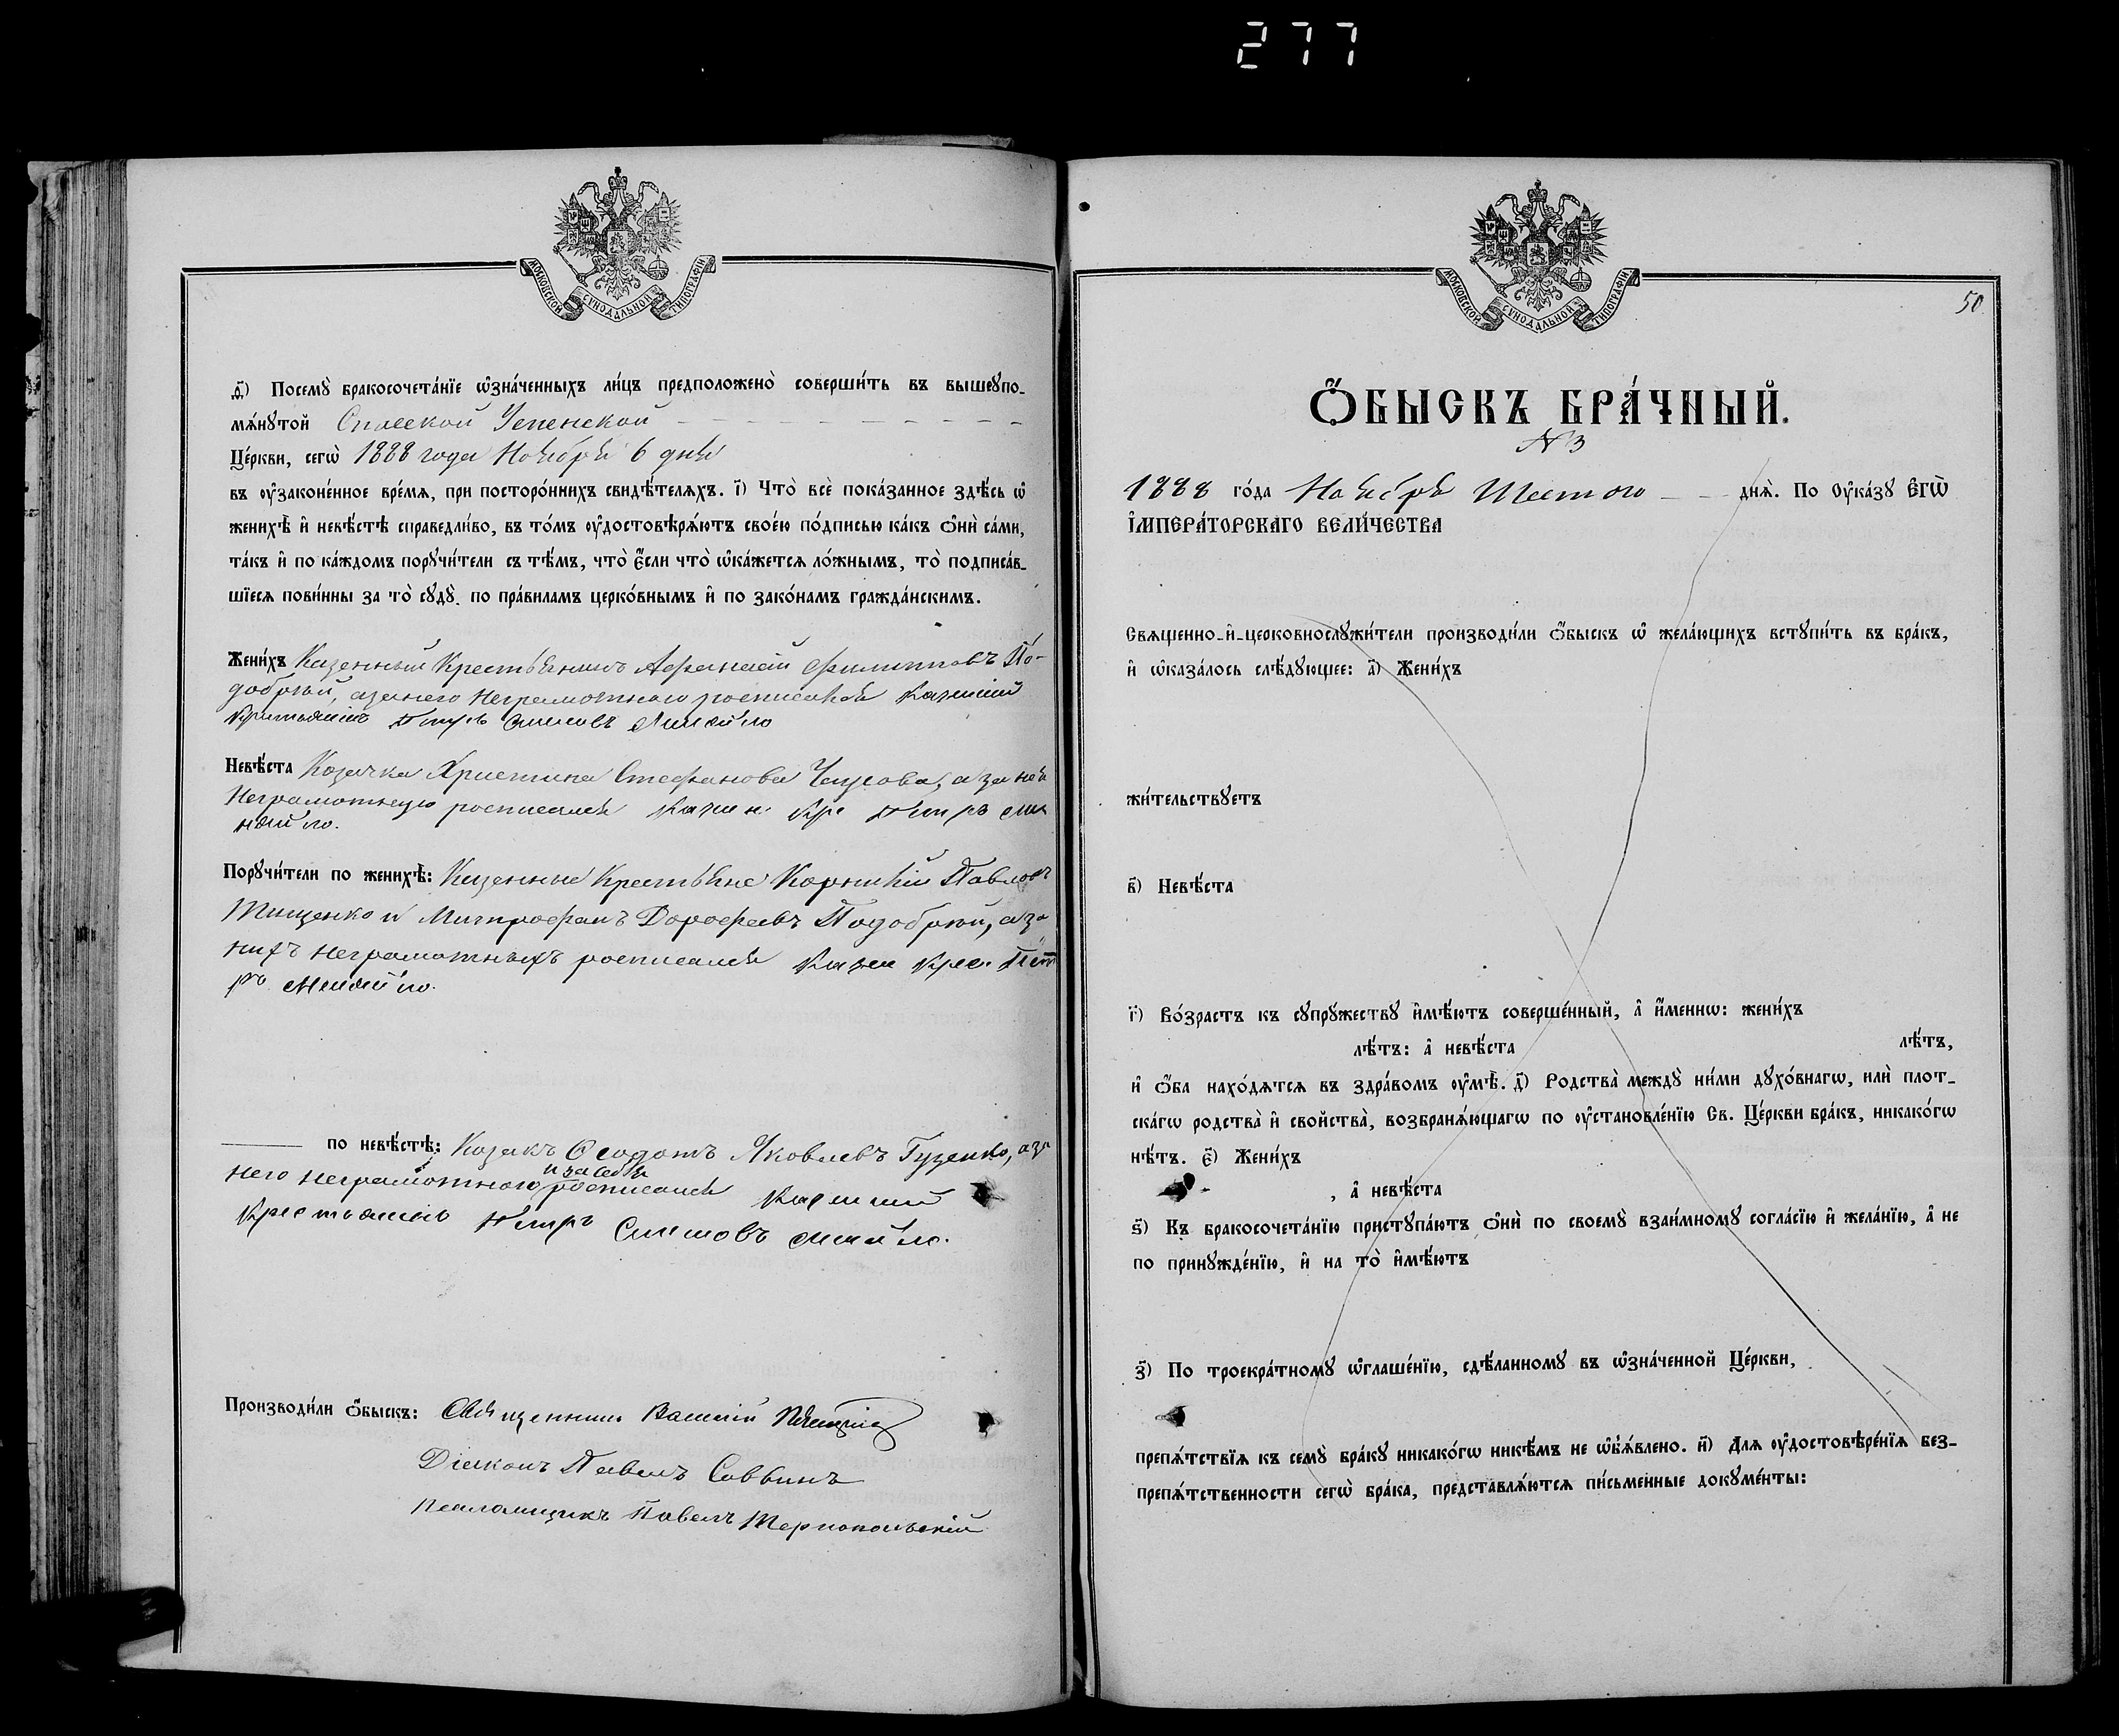 277
МОСКОВСКОЙ СѴНОДАЛЬНОЙ ТИПОГРАФІИ
д҃) Посемꙋ̀ бракосочета́нїе ѡ҆зна́ченныхъ ли́цъ предположено̀ соверши́ть въ вышеꙋпо-
мѧ́нꙋтой Спасской Успенской
Це́ркви, сегѡ̀ 1888 года Ноября 6 дня
въ ᲂу҆законе́нное вре́мѧ, при посторо́ннихъ свидѣ́телѧхъ. і҃) Что̀ всѐ пока́занное здѣ́сь ѡ҆
женихѣ̀ и҆ невѣ́стѣ справедли́во, въ то́мъ ᲂу҆достовѣрѧ́ютъ свое́ю по́дписью ка́къ ѻ҆нѝ са́ми,
та́къ и҆ по ка́ждомъ порꙋчи́тели съ тѣ́мъ, что̀ є҆́сли что̀ ѡ҆ка́жетсѧ ло́жнымъ, то̀ подписа́в-
шїесѧ пови́нны за то̀ сꙋдꙋ̀ по пра́виламъ церко́внымъ и҆ по зако́намъ гражда́нскимъ.
Жени́хъ Казенный Крестьянинъ Афанасій Филипповъ По-
добный, а за него неграмотнаго росписался Казенный
Крестьянинъ Петръ Михайло
Невѣ́ста Козачка Христина Стефанова, а за нея
Неграмотную росписался Казен. Кре Петръ Ми
хайло.
Порꙋчи́тели по женихѣ̀: Казенные Крестьяне Корнилій Павловъ
Тищенко и Митрофанъ Дорофеевъ Подобный, а за
нихъ неграмотныхъ росписался Казен Крес. Пет
ръ Михайло.
по невѣ́стѣ: Козакъ Ѳеодотъ Яковлевъ Гузенко, а за
и за себя
него неграмотного росписался Казенный
Крестьянинъ Петръ Михайло.
Производи́ли ѻ҆́быскъ: Священникъ Василій
Діаконъ Павелъ Саввинъ
Псаломщикъ Павелъ Тернопольскій
МОСКОВСКОЙ СѴНОДАЛЬНОЙ ТИПОГРАФІИ
50
Ѻ҆́БЫСКЪ БРА́ЧНЫЙ.
№ 3
1888 го́да Ноября Шестого днѧ̀. По Оу҆ка́зꙋ Є҆ГѠ̀
І҆МПЕРА́ТОРСКАГО ВЕЛИ́ЧЕСТВА
Свѧщенно-и҆-церковнослꙋжи́тели производи́ли ѻ҆́быскъ ѡ҆ жела́ющихъ встꙋпи́ть въ бра́къ,
и҆ ѡ҆каза́лось слѣ́дꙋющее: а҃) Жени́хъ
жи́тельствꙋетъ
в҃) Невѣ́ста
г҃) Во́зрастъ къ сꙋпрꙋ́жествꙋ и҆мѣ́ютъ соверше́нный, а҆ и҆́менно: жени́хъ
лѣ́тъ: а҆ невѣ́ста лѣ́тъ,
и҆ ѻ҆́ба нахо́дѧтсѧ въ здра́вомъ ᲂу҆мѣ̀. д҃) Родства̀ междꙋ̀ ни́ми дꙋхо́внагѡ, илѝ плот-
ска́гѡ родства̀ и҆ свойства̀, возбранѧ́ющагѡ по ᲂу҆становле́нїю Св. Це́ркви бра́къ, никако́гѡ
нѣ́тъ. є҃) Жени́хъ
, а҆ невѣ́ста
ѕ҃) Къ бракосочета́нїю пристꙋпа́ютъ ѻ҆нѝ по своемꙋ̀ взаи́мномꙋ согла́сїю и҆ жела́нїю, а҆ не
по принꙋжде́нїю, и҆ на то̀ и҆мѣ́ютъ
з҃) По троекра́тномꙋ ѡ҆глаше́нїю, сдѣ́ланномꙋ въ ѡ҆зна́ченной Це́ркви,
препѧ́тствїѧ къ семꙋ̀ бра́кꙋ никако́гѡ никѣ́мъ не ѡ҆б̾ѧ́влено. и҃) Для ᲂу҆достовѣре́нїѧ без-
препѧ́тственности сегѡ̀ бра́ка, представлѧ́ютсѧ пи́сьменные докꙋме́нты: